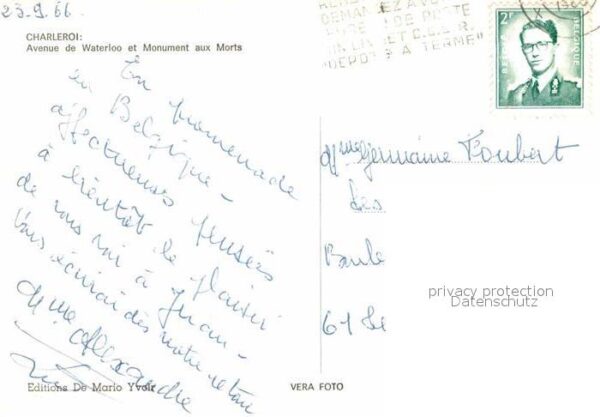 23.9.66.
CHARLEROI:
Avenue de Waterloo et Monument aux Morts
En promenade
en Belgique -
affectueuses pensées
à bientôt le plaisir
de vous voir à
Vous écrirai dès notre retour
Mme Alexandre
DEMANDEZ A VO
DE POSTE
UN LIVRET C.G.E.R.
"DEPOT A TERME"
2F
BELGIQUE
Mme Germaine Foubert
Les
61
privacy protection
Datenschutz
Editions De Mario Yvoir
VERA FOTO